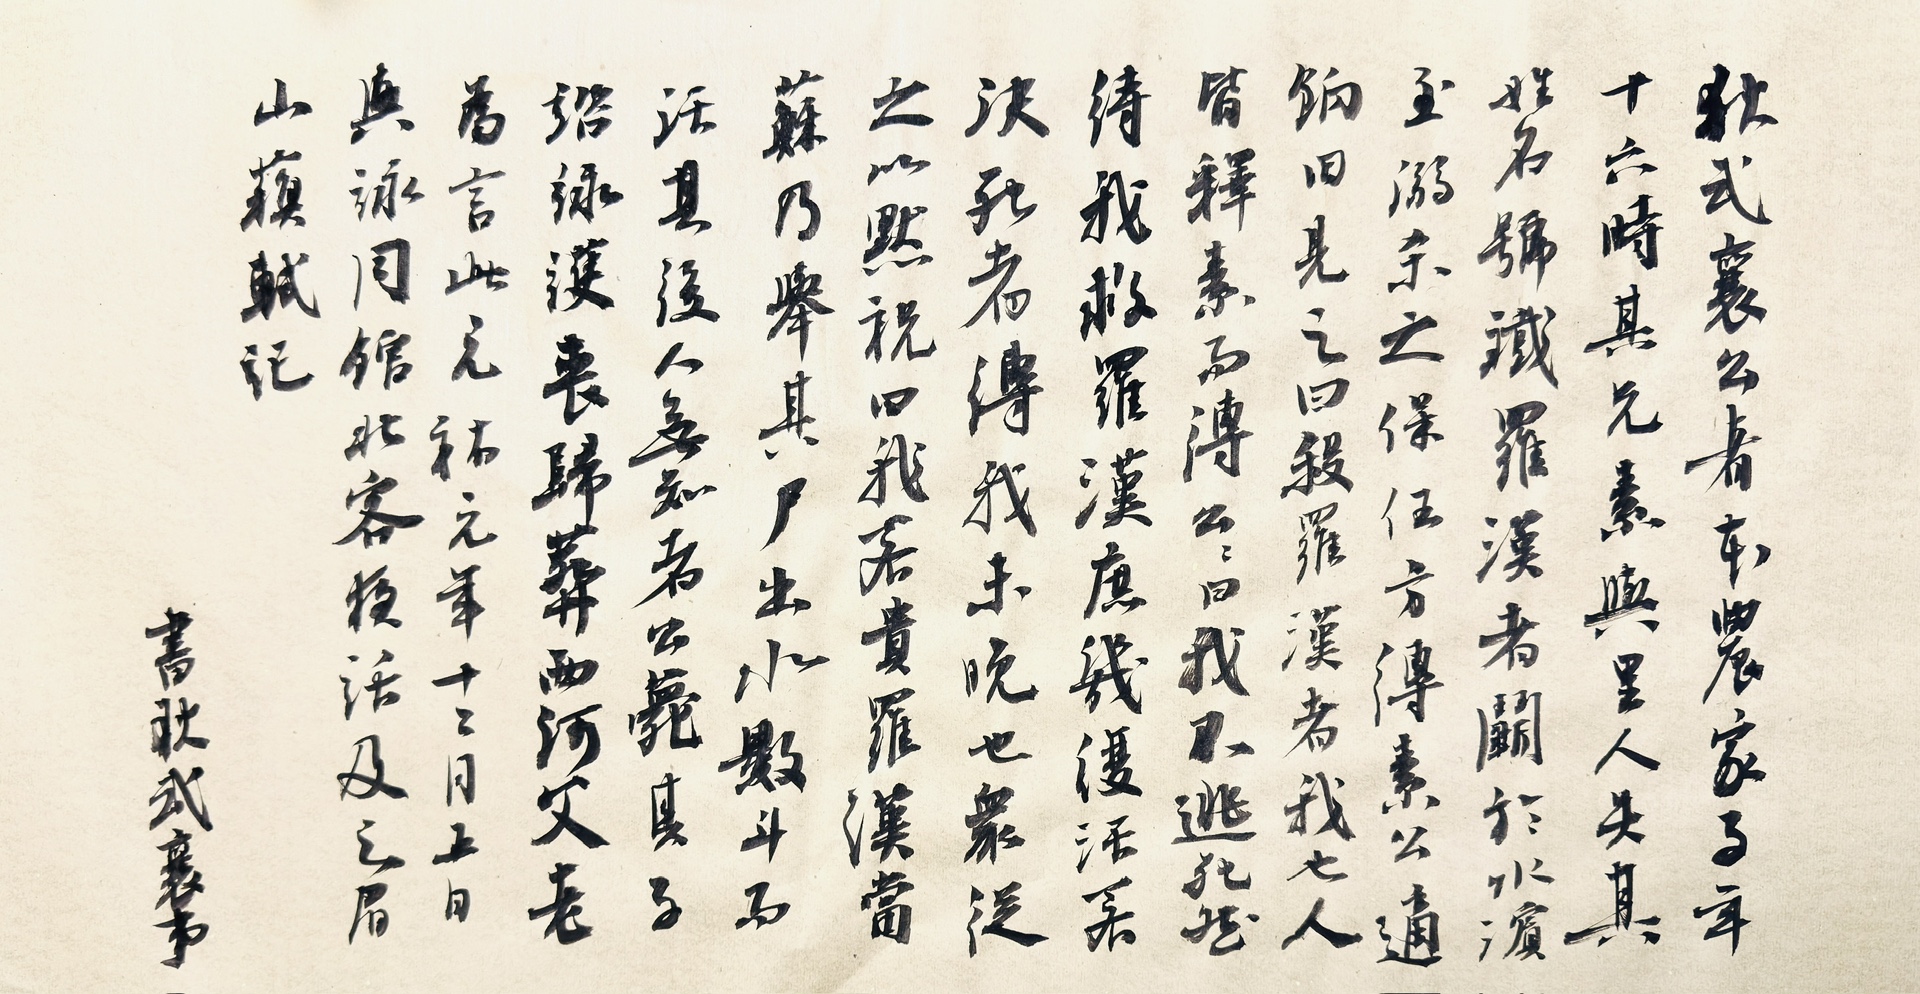 狄武襄公者本農家子年
十六時其兄素與里人失其
姓名號鐵羅漢者鬭於水濱
至溺杀之保伍方縛素公適
餉田見之曰殺羅漢者我也人
皆釋素而縛公公曰我不逃死然
待我救羅漢庶幾復活若
決死者縛我未晚也衆從
之公默祝曰我若貴羅漢當
蘇乃舉其尸出水數斗而
活其後人無知者公薨其子
諮詠護喪歸葬西河父老
為言此元祐元年十二月五日
與詠同館北客夜話及之眉
山蘇軾記
書狄武襄事